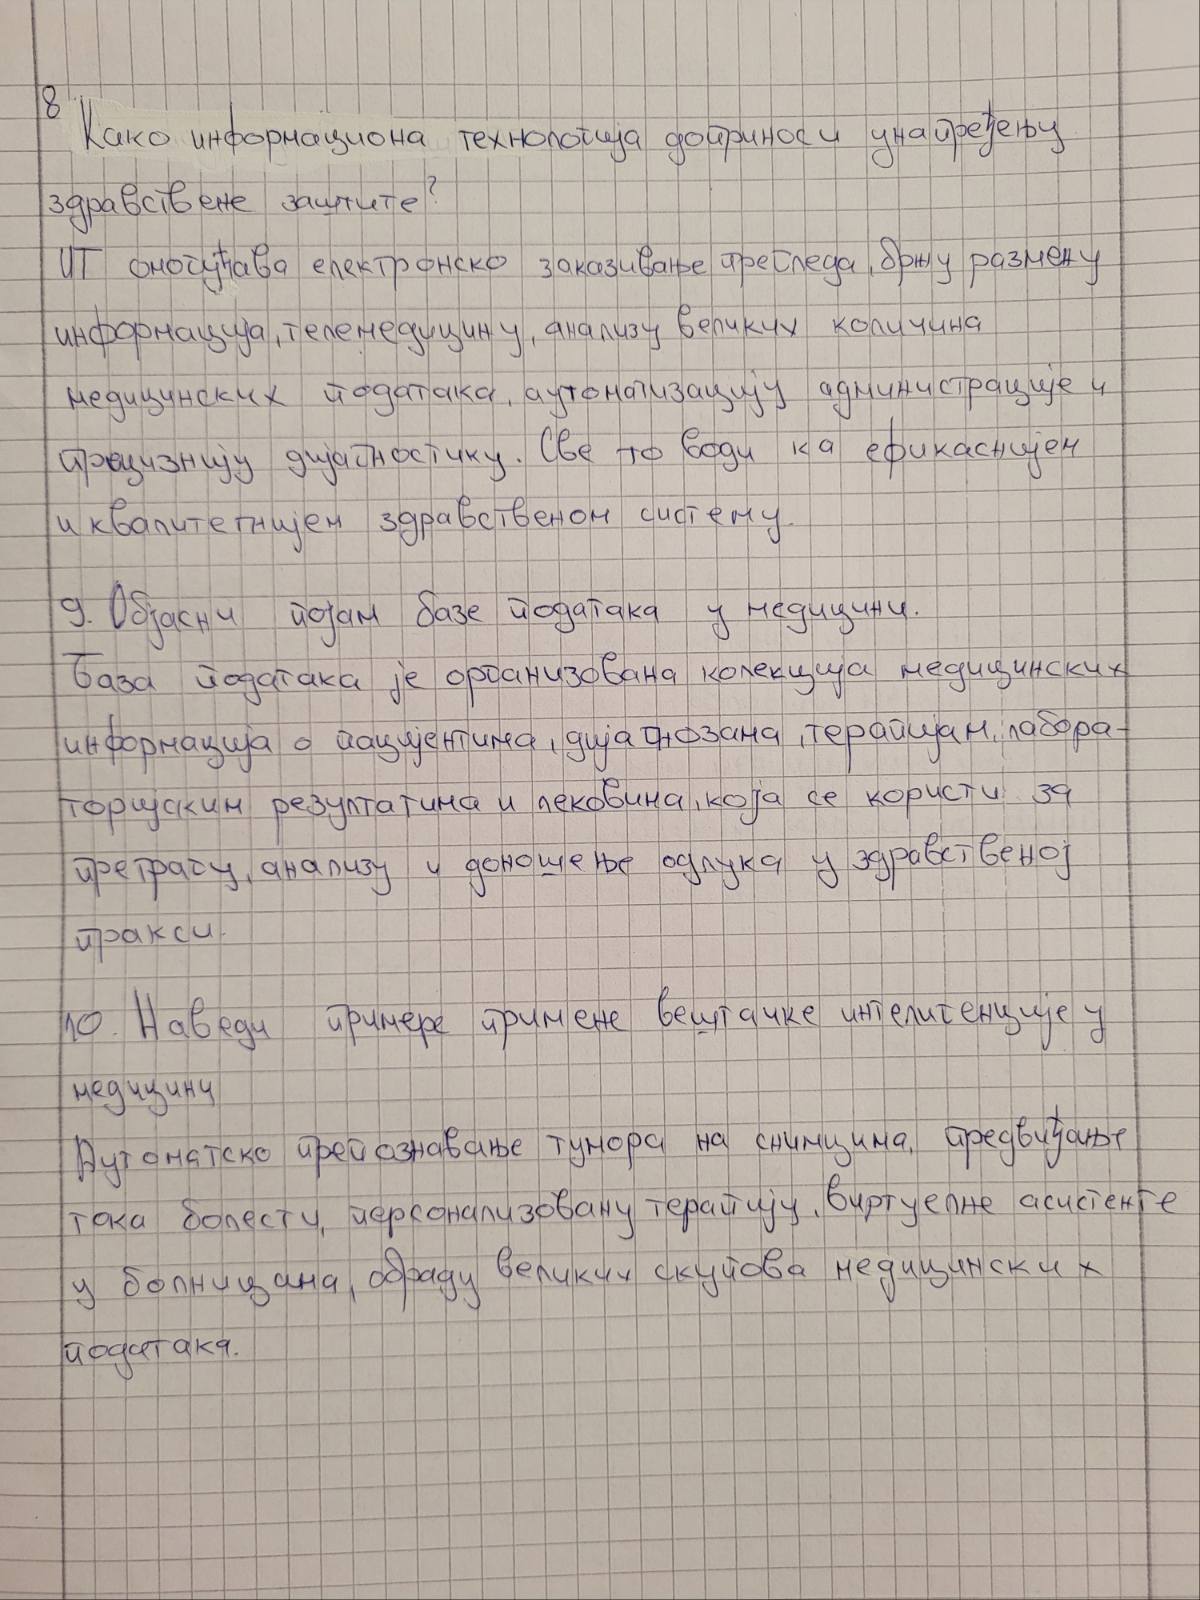 8
Како информациона технологија доприноси унапређењу
здравствене заштите?
ИТ омогућава електронско заказивање прегледа, бржу размену
информација, телемедицину, анализу великих количина
медицинских података, аутоматизацију администрације и
прецизнију дијагностику. Све то води ка ефикаснијем
и квалитетнијем здравственом систему.
9. Објасни појам базе података у медицини.
База података је организована колекција медицинских
информација о пацијентима, дијагнозама, терапијам, лабора-
торијским резултатима и лековима, која се користи за
претрагу, анализу и доношење одлука у здравственој
пракси.
10. Наведи примере примене вештачке интелигенције у
медицини
Аутоматско препознавање тумора на снимцима, предвиђање
тока болести, персонализовану терапију, виртуелне асистенте
у болницама, обраду великих скупова медицинских
података.